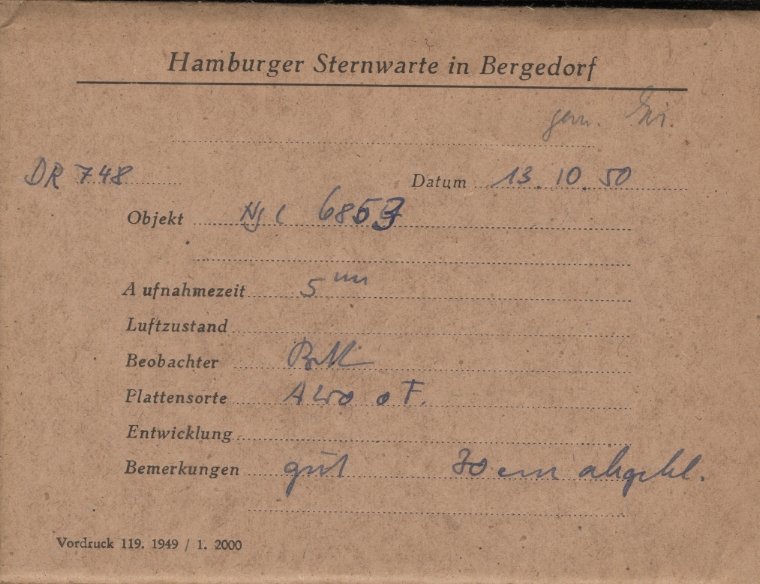 Hamburger Sternwarte in Bergedorf
gem.
DR 748 Datum 13.10.50
Objekt NGC 6853
Aufnahmezeit 5 m
Luftzustand
Beobachter
Plattensorte o F.
Entwicklung
Bemerkungen gut 30 cm abgebl.
Vordruck 119. 1949 / 1. 2000